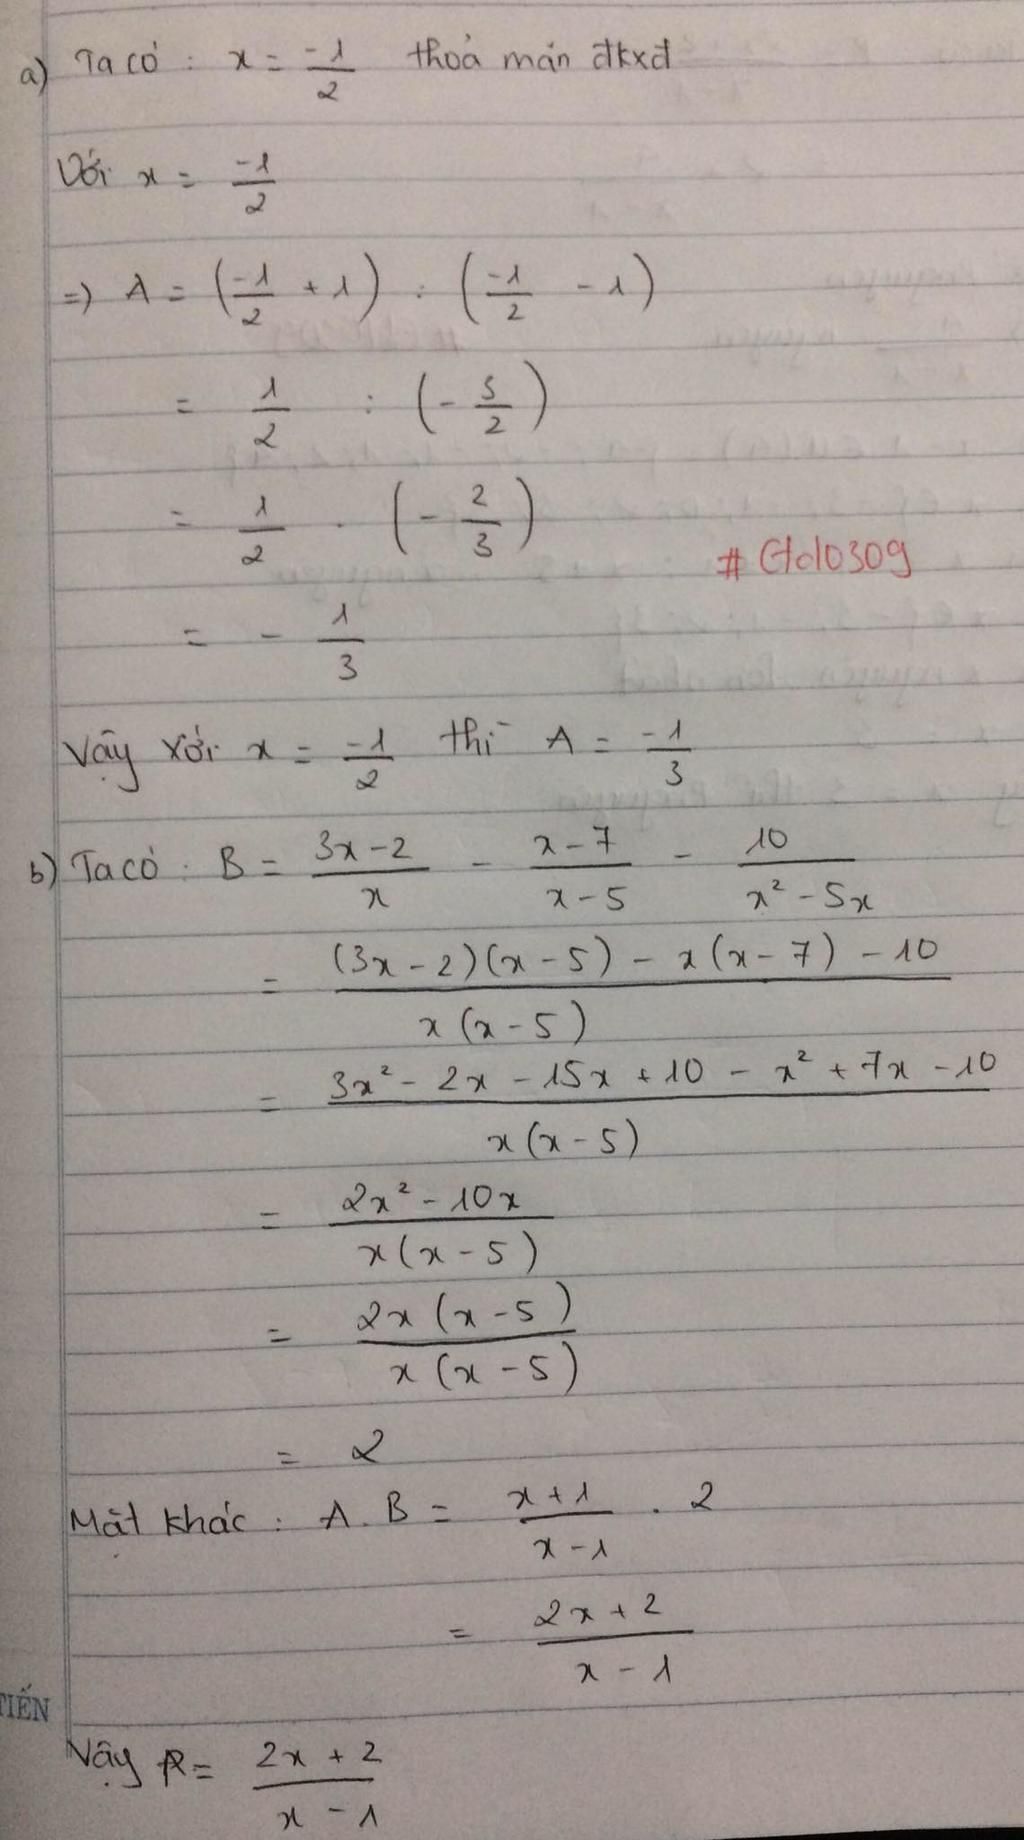 a) Ta có : x = -1/2 thoả mãn đkxđ
Với x = -1/2
=> A = (-1/2 + 1) : (-1/2 - 1)
= 1/2 : (- 3/2)
= 1/2 . (- 2/3)
= - 1/3
Vậy với x = -1/2 thì A = -1/3
b) Ta có : B = (3x-2)/x - (x-7)/(x-5) - 10/(x² - 5x)
= ((3x - 2)(x - 5) - x(x - 7) - 10)/(x(x - 5))
= (3x² - 2x - 15x + 10 - x² + 7x - 10)/(x(x - 5))
= (2x² - 10x)/(x(x - 5))
= (2x(x - 5))/(x(x - 5))
= 2
Mặt khác : A . B = (x+1)/(x-1) . 2
= (2x + 2)/(x - 1)
TIẾN
Vậy P = (2x + 2)/(x - 1)